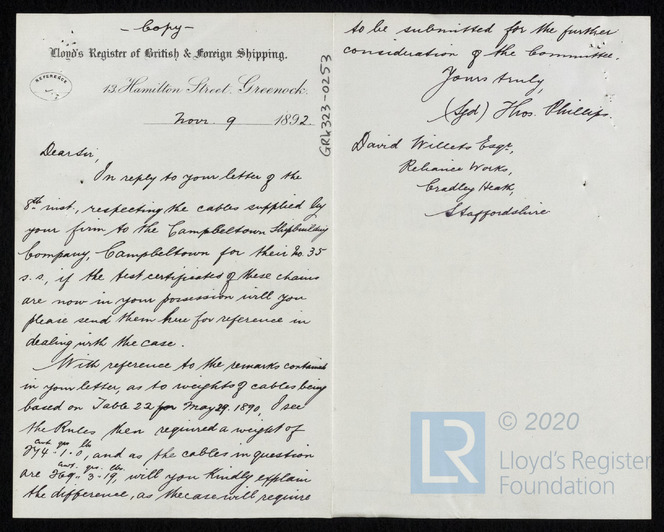 - Copy -
Lloyd's Register of British & Foreign Shipping.
REFERENCE
13 Hamilton Street, Greenock.
Novr. 9 1892.
GRK323-0253
Dear Sir,
In reply to your letter of the
8th inst, respecting the cables supplied by
your firm to the Campbeltown Shipbuilding
Company, Campbeltown for their No. 35
s.s, if the test certificates of these chains
are now in your possession will you
please send them here for reference in
dealing with the case.
With reference to the remarks contained
in your letter, as to weights of cables being
based on Table 22 for May 29. 1890, I see
the Rules then required a weight of
cwt qrs lb
274 - 1 - 0, and as the cables in question
cwt. qrs. lbs.
are 269 " 3 - 19, will you kindly explain
the difference, as the case will require
to be submitted for the further
consideration of the Committee.
Yours truly,
(Sgd) Thos. Phillips.
David Willets Esqr,
Reliance Works,
Cradley Heath,
Staffordshire
LR
© 2020
Lloyd's Register
Foundation